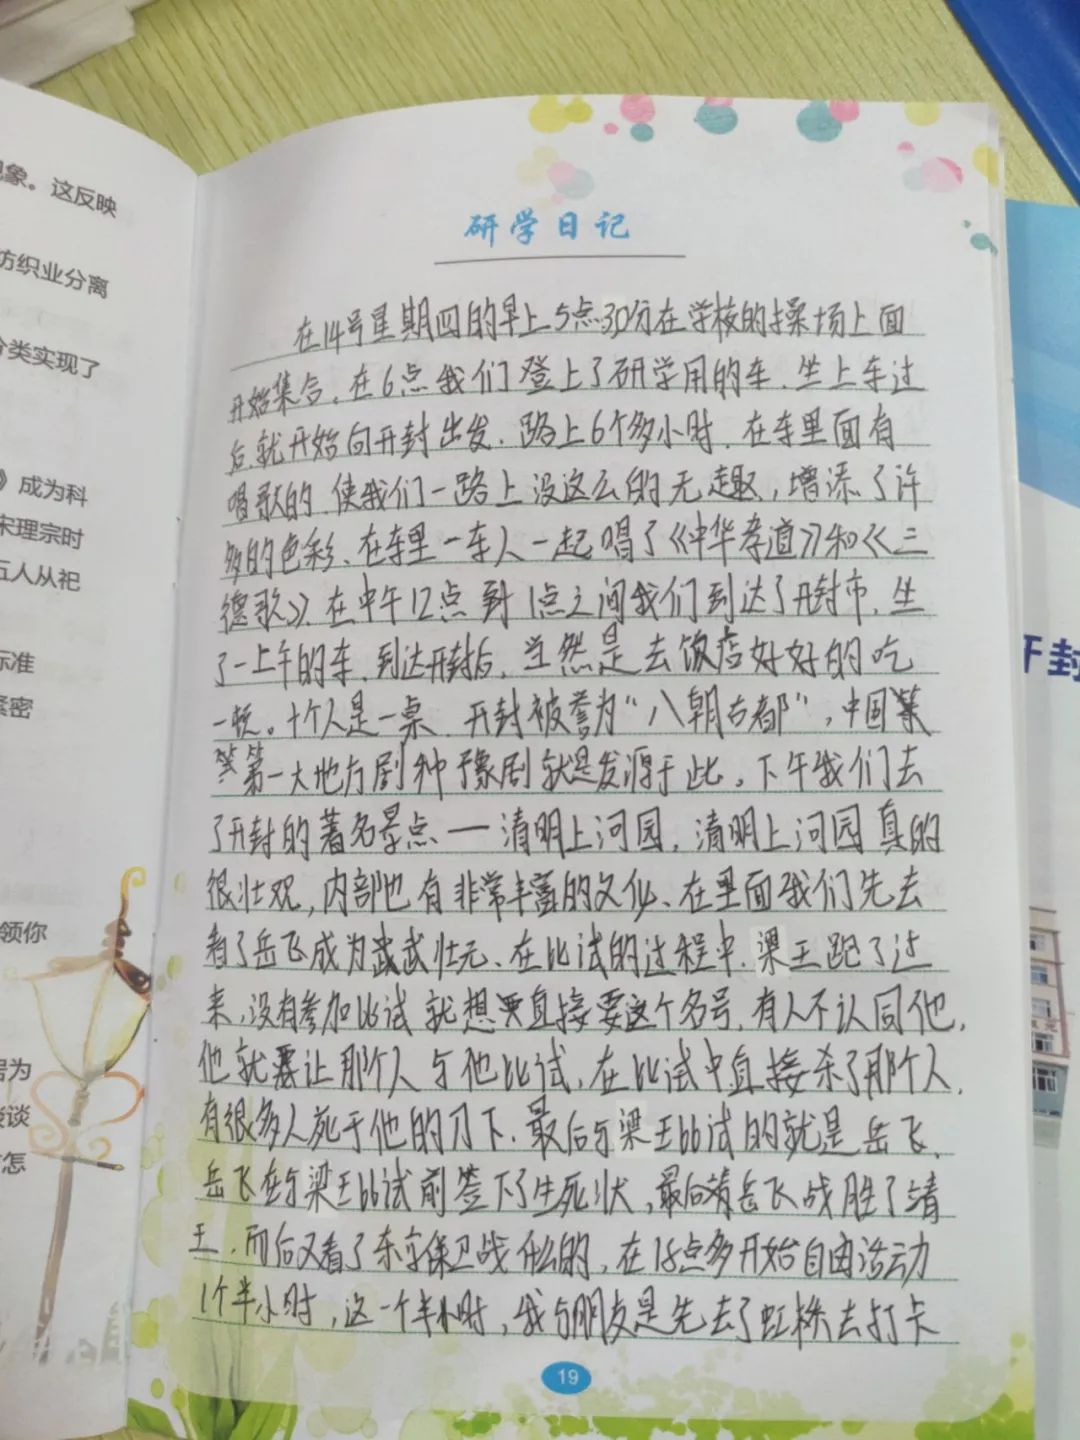 现象。这反映
纺织业分离
分类实现了
》成为科
宋理宗时
五人从祀
标准
紧密
领你
居为
谈谈
怎
研学日记
在14号星期四的早上5点30分在学校的操场上面
开始集合。在6点我们登上了研学用的车.坐上车过
后.就开始向开封出发.路上6个多小时.在车里面有
唱歌的.使我们一路上没这么的无趣,增添了许
多的色彩、在车里一车人一起唱了《中华孝道》和《三
德歌》.在中午12点到1点之间我们到达了开封市.坐
了一上午的车.到达开封后,当然是去饭店好好的吃
一顿。十个人是一桌.开封被誉为“八朝古都”,中国
第一大地方剧种予豫剧就是发源于此。下午我们去
了开封的著名景点一清明上河园,清明上河园真的
很壮观,内部也有非常丰富的文化、在里面我们先去
看了岳飞成为武武壮元、在比试的过程中.梁王跑了过
来,没有参加比试就想要直接要这个名号,有人不认同他,
他就要让那个人与他比试,在比试中直接杀了那个人.
有很多人死于他的刀下.最后与梁王比试的就是岳飞.
岳飞在与梁王比试前签下了生死状,最后岳飞战胜了
王.而后又看了东京保卫战什么的,在18点多开始自由活动
1个半小时,这一个半小时,我与朋友是先去了虹桥去打卡
19
开封